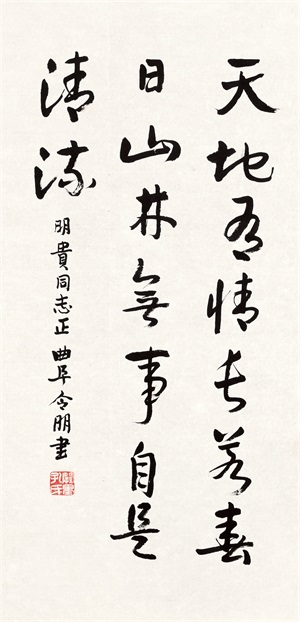 天地有情長若春
日山林無事自是
清流
明貴同志正 曲阜令朋書